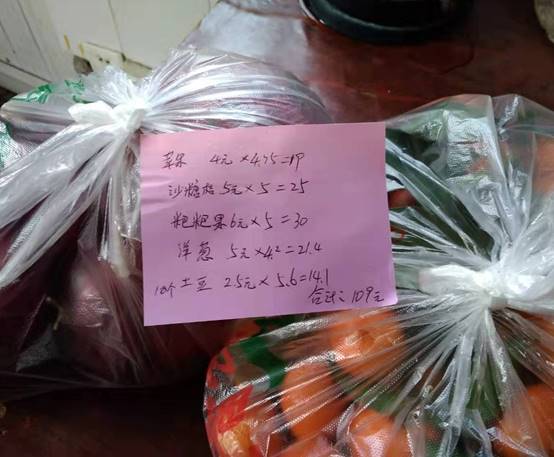 苹果 4元×4.75=19
沙糖桔 5元×5=25
粑粑果 6元×5=30
洋葱 5元×4.2=21.4
10个 土豆 2.5元×5.6=14.1
合计：109元